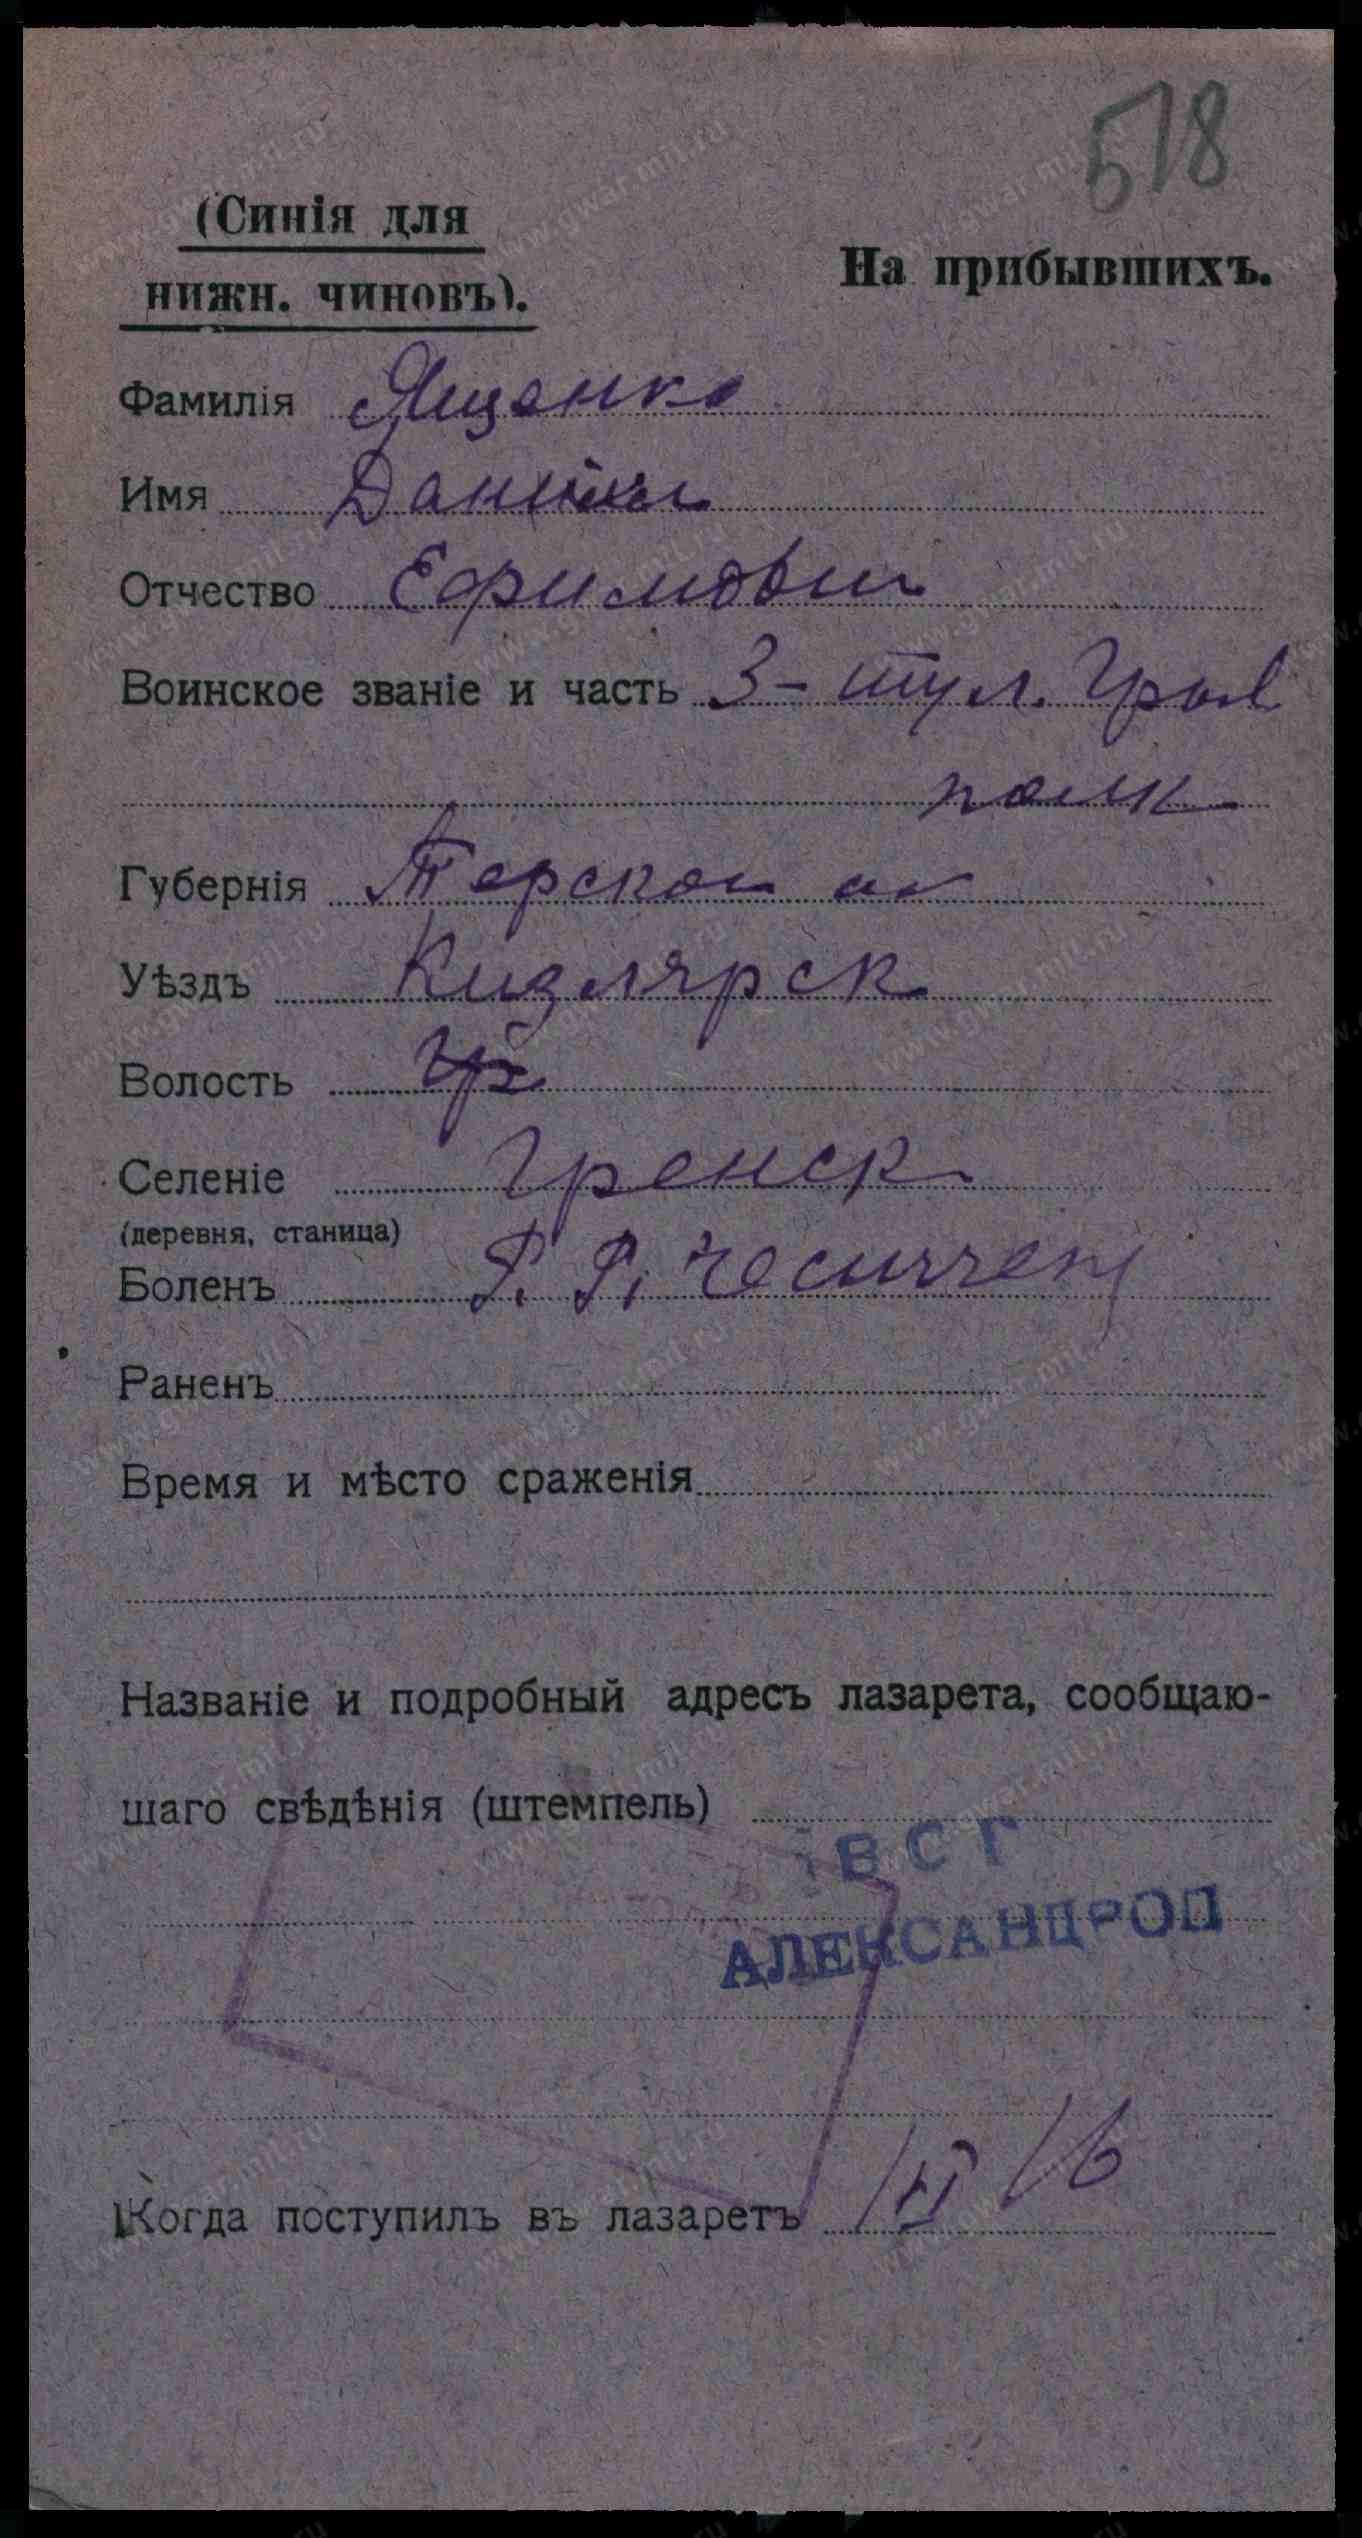 518
(Синія для
нижн. чиновъ).
На прибывшихъ.
Фамилія Ященко
Имя Данило
Отчество Ефимович
Воинское званіе и часть 3-
полк
Губернія Терской
Уѣздъ Кизлярск
Волость
Селеніе
(деревня, станица)
Боленъ
Раненъ
Время и мѣсто сраженія
Названіе и подробный адресъ лазарета, сообщаю-
щаго свѣдѣнія (штемпель)
ВСГ
АЛЕКСАНДРОП
Когда поступилъ въ лазаретъ
www.gwar.mil.ru